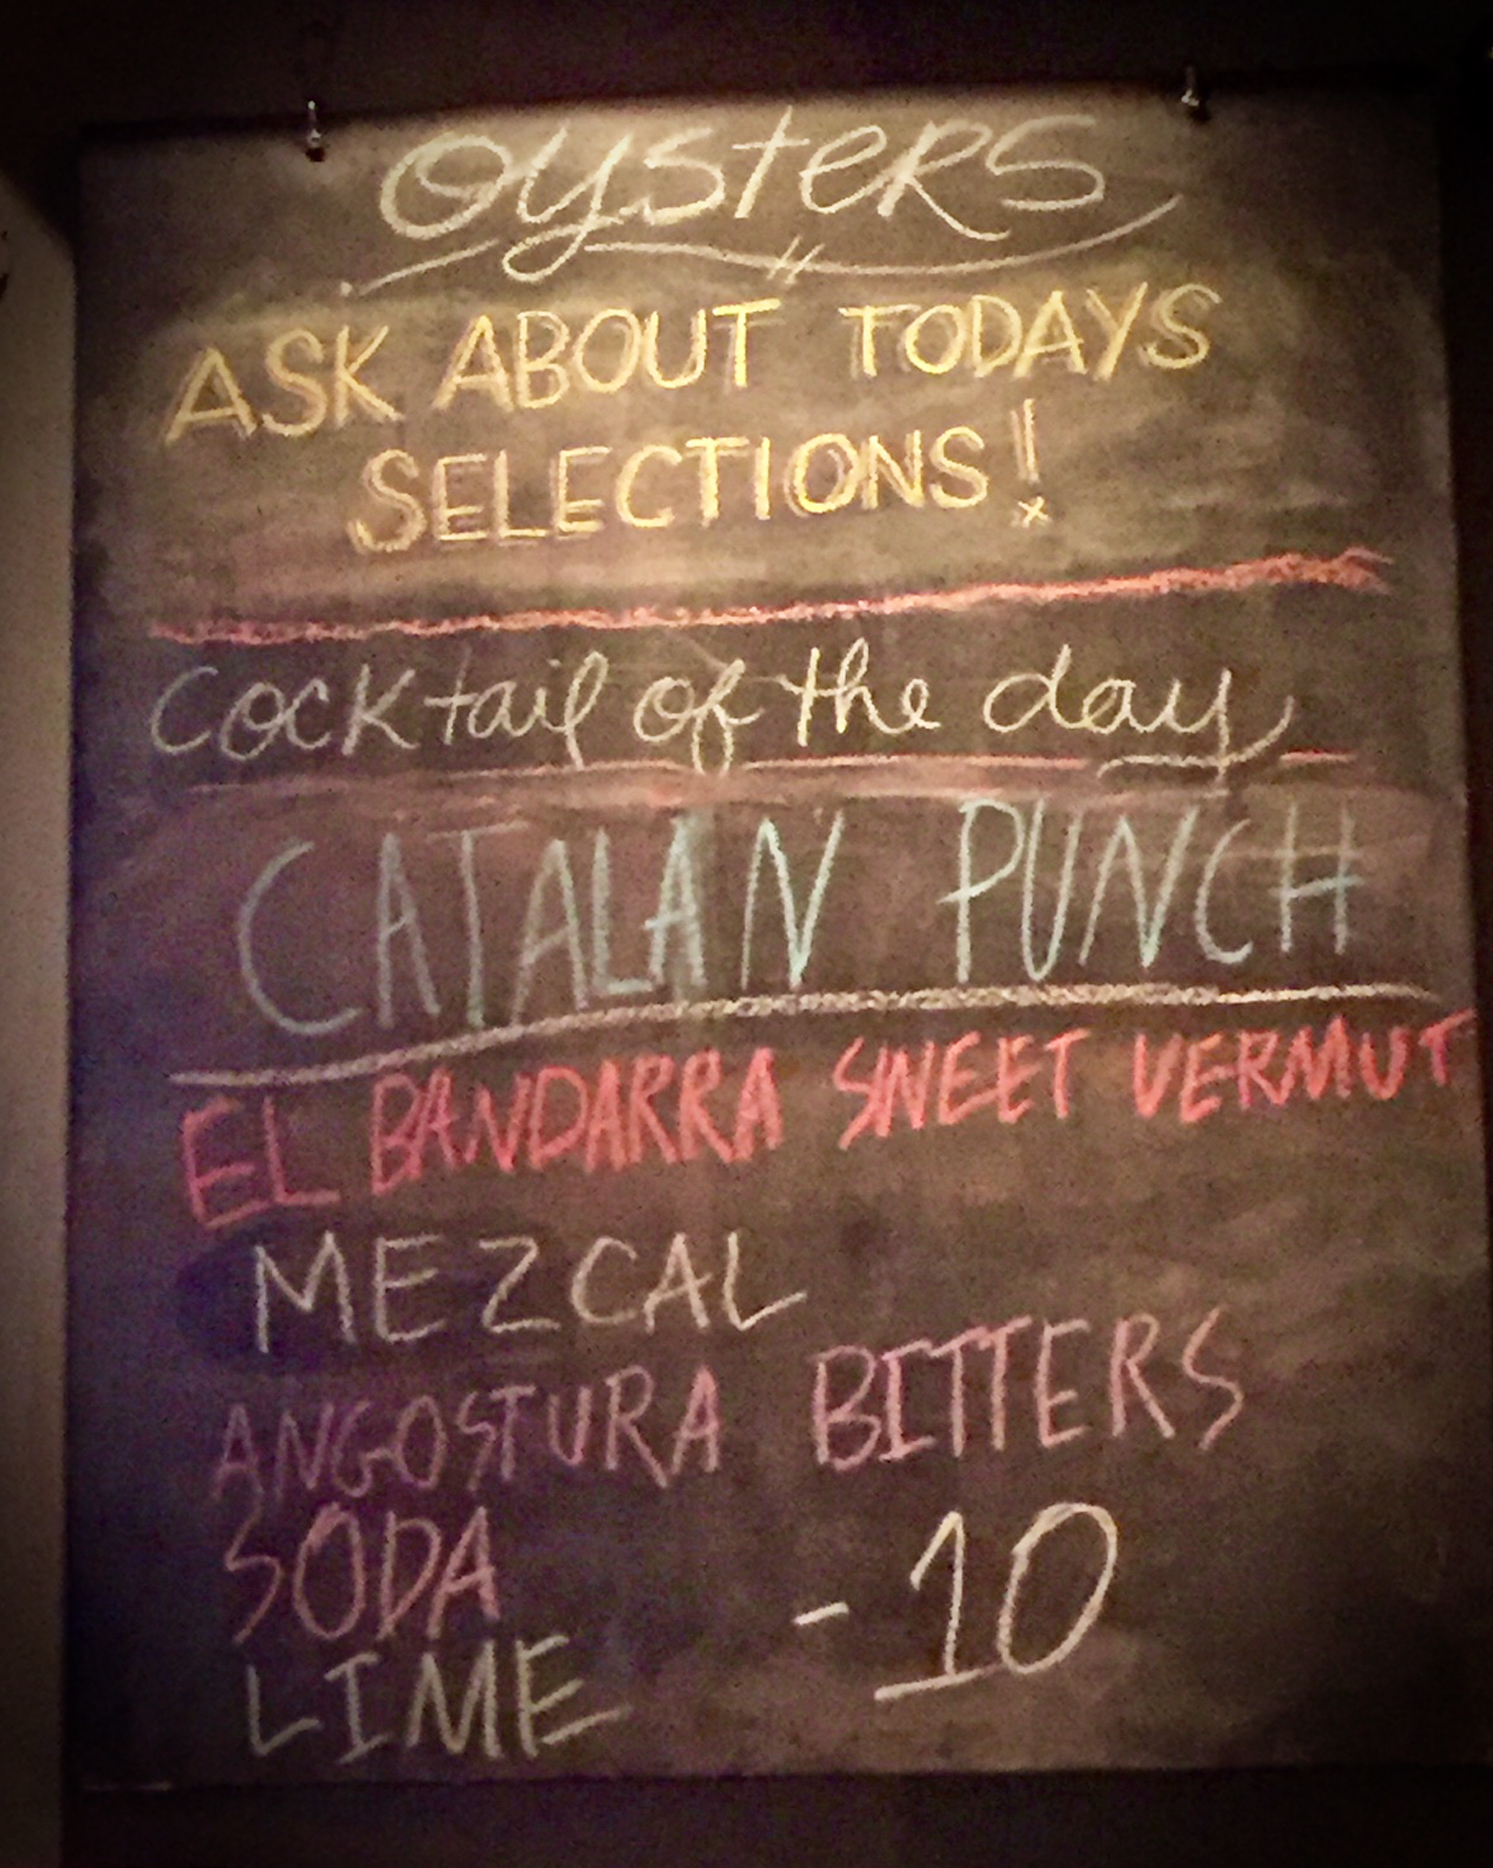 OYSTERS
ASK ABOUT TODAYS
SELECTIONS!
Cocktail of the day
CATALAN PUNCH
EL BANDARRA SWEET VERMUT
MEZCAL
ANGOSTURA BITTERS
SODA
- 10
LIME